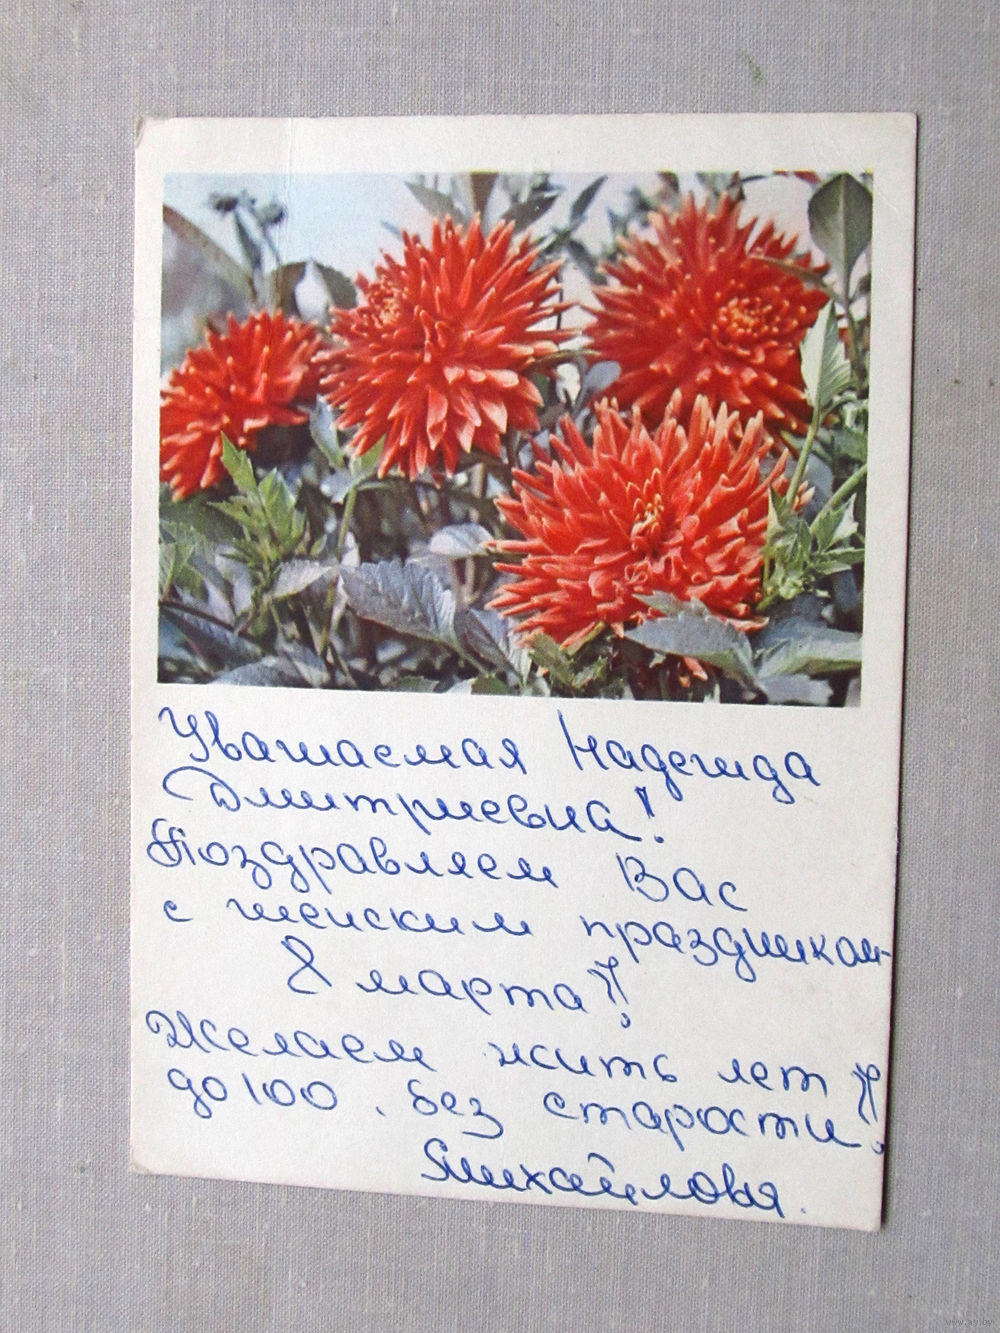 Уважаемая Надежда
Дмитриевна!
Поздравляем Вас
с женским праздником
8 марта!
Желаем жить лет
до 100. без старости!
Михайловы.
www.ay.by